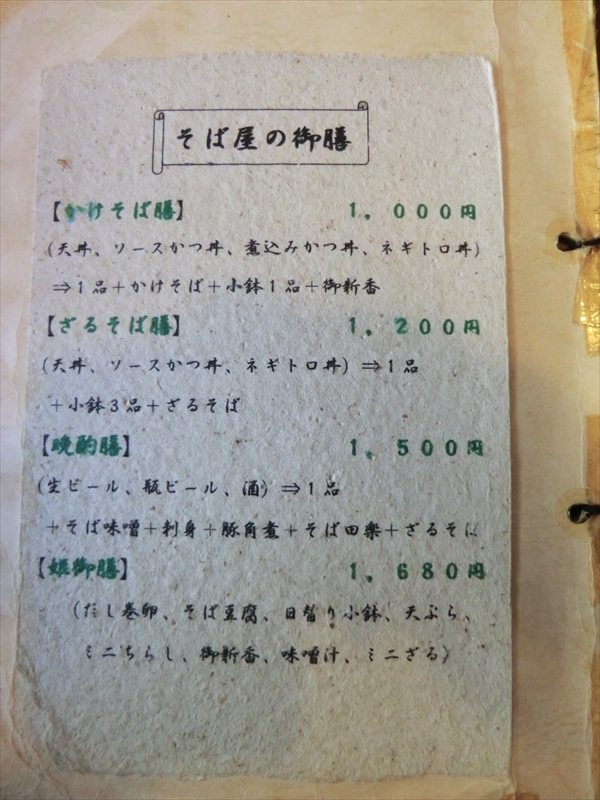 そば屋の御膳
【かけそば膳】 1,000円
(天丼、ソースかつ丼、煮込みかつ丼、ネギトロ丼)
⇒1品+かけそば+小鉢1品+御新香
【ざるそば膳】 1,200円
(天丼、ソースかつ丼、ネギトロ丼)⇒1品
+小鉢3品+ざるそば
【晩酌膳】 1,500円
(生ビール、瓶ビール、酒)⇒1品
+そば味噌+刺身+豚角煮+そば田楽+ざるそば
【姫御膳】 1,680円
(だし巻卵、そば豆腐、日替り小鉢、天ぷら、
ミニちらし、御新香、味噌汁、ミニざる)